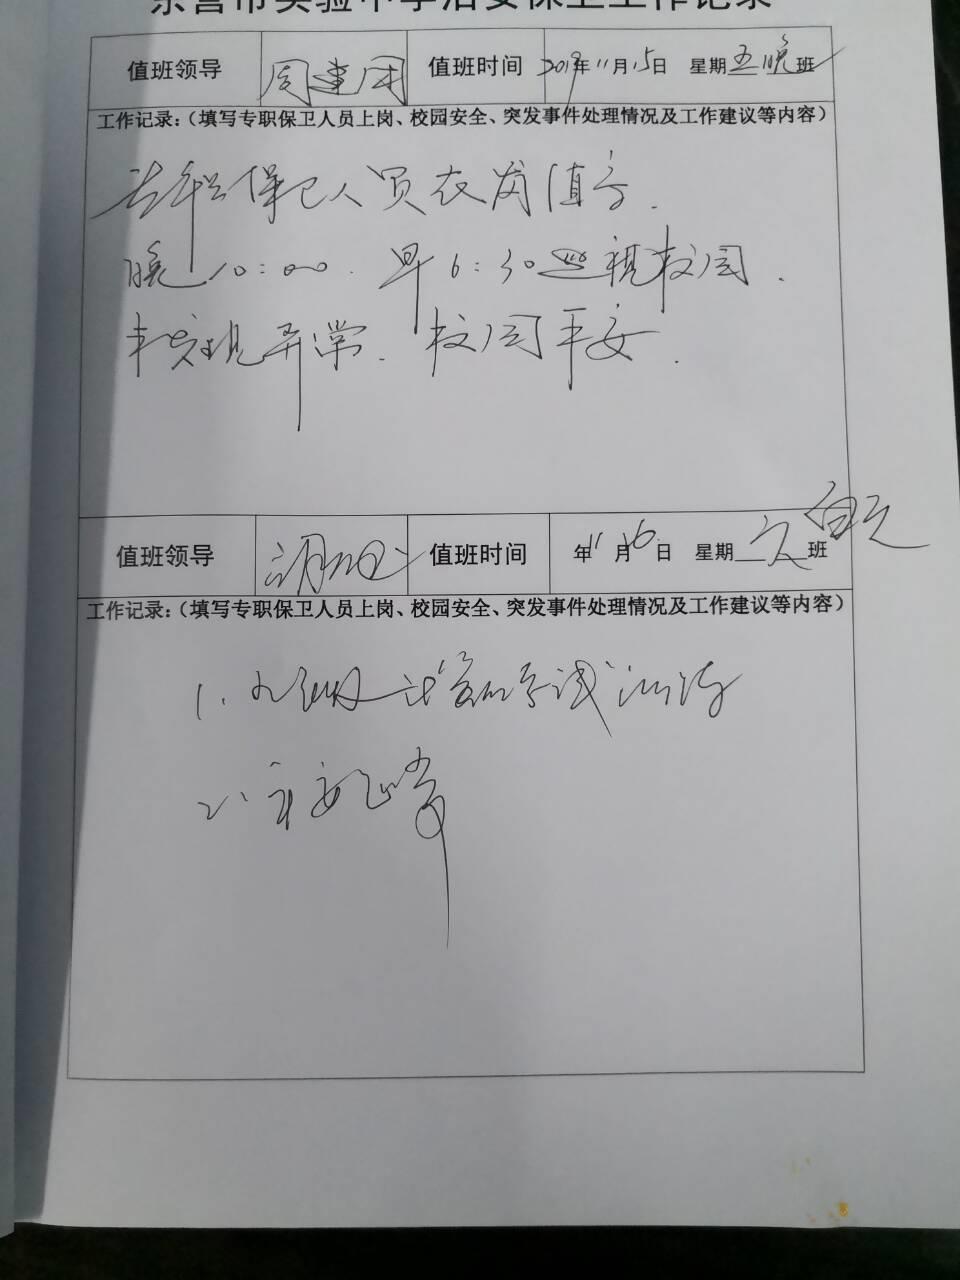 东营市实验中学治安保卫工作记录
值班领导 周建国 值班时间 2019年11月15日 星期五晚班
工作记录：（填写专职保卫人员上岗、校园安全、突发事件处理情况及工作建议等内容）
专职保卫人员在岗值守.
晚10:00. 早6:30巡视校园.
未发现异常. 校园平安.
值班领导 值班时间 年11月16日 星期六 白天班
工作记录：（填写专职保卫人员上岗、校园安全、突发事件处理情况及工作建议等内容）
1.
2.